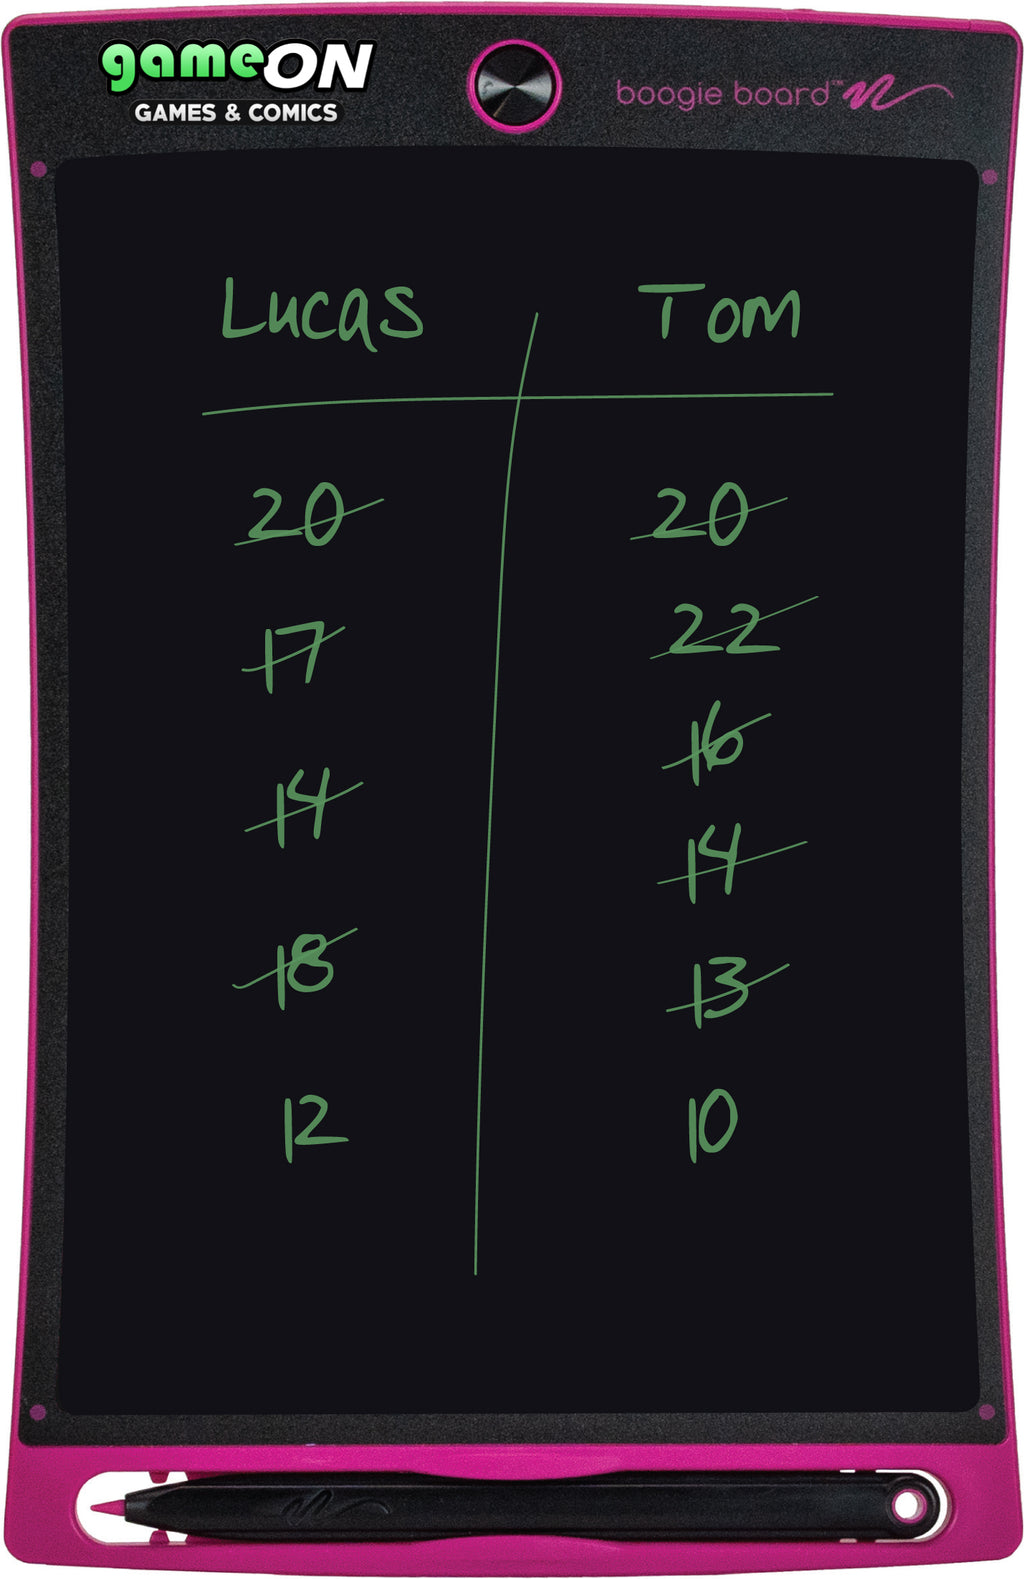 gameON
GAMES & COMICS
boogie board™
Lucas Tom
20 20
17 22
14 16
18 14
12 13
10